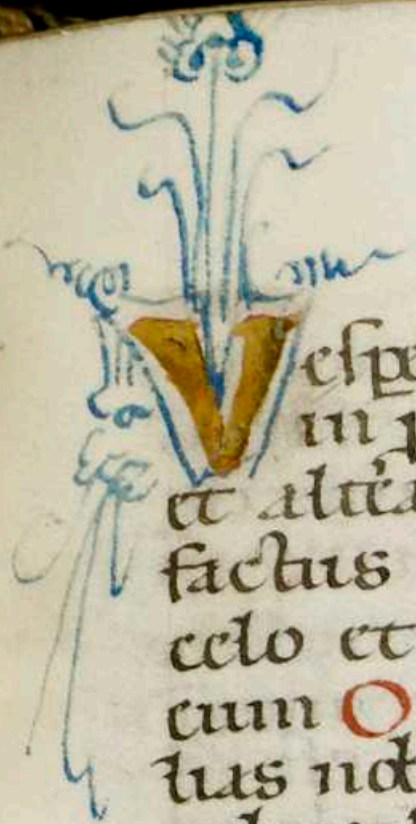 Vespe
in p
et altera
factus
celo et
cum O
lias nob